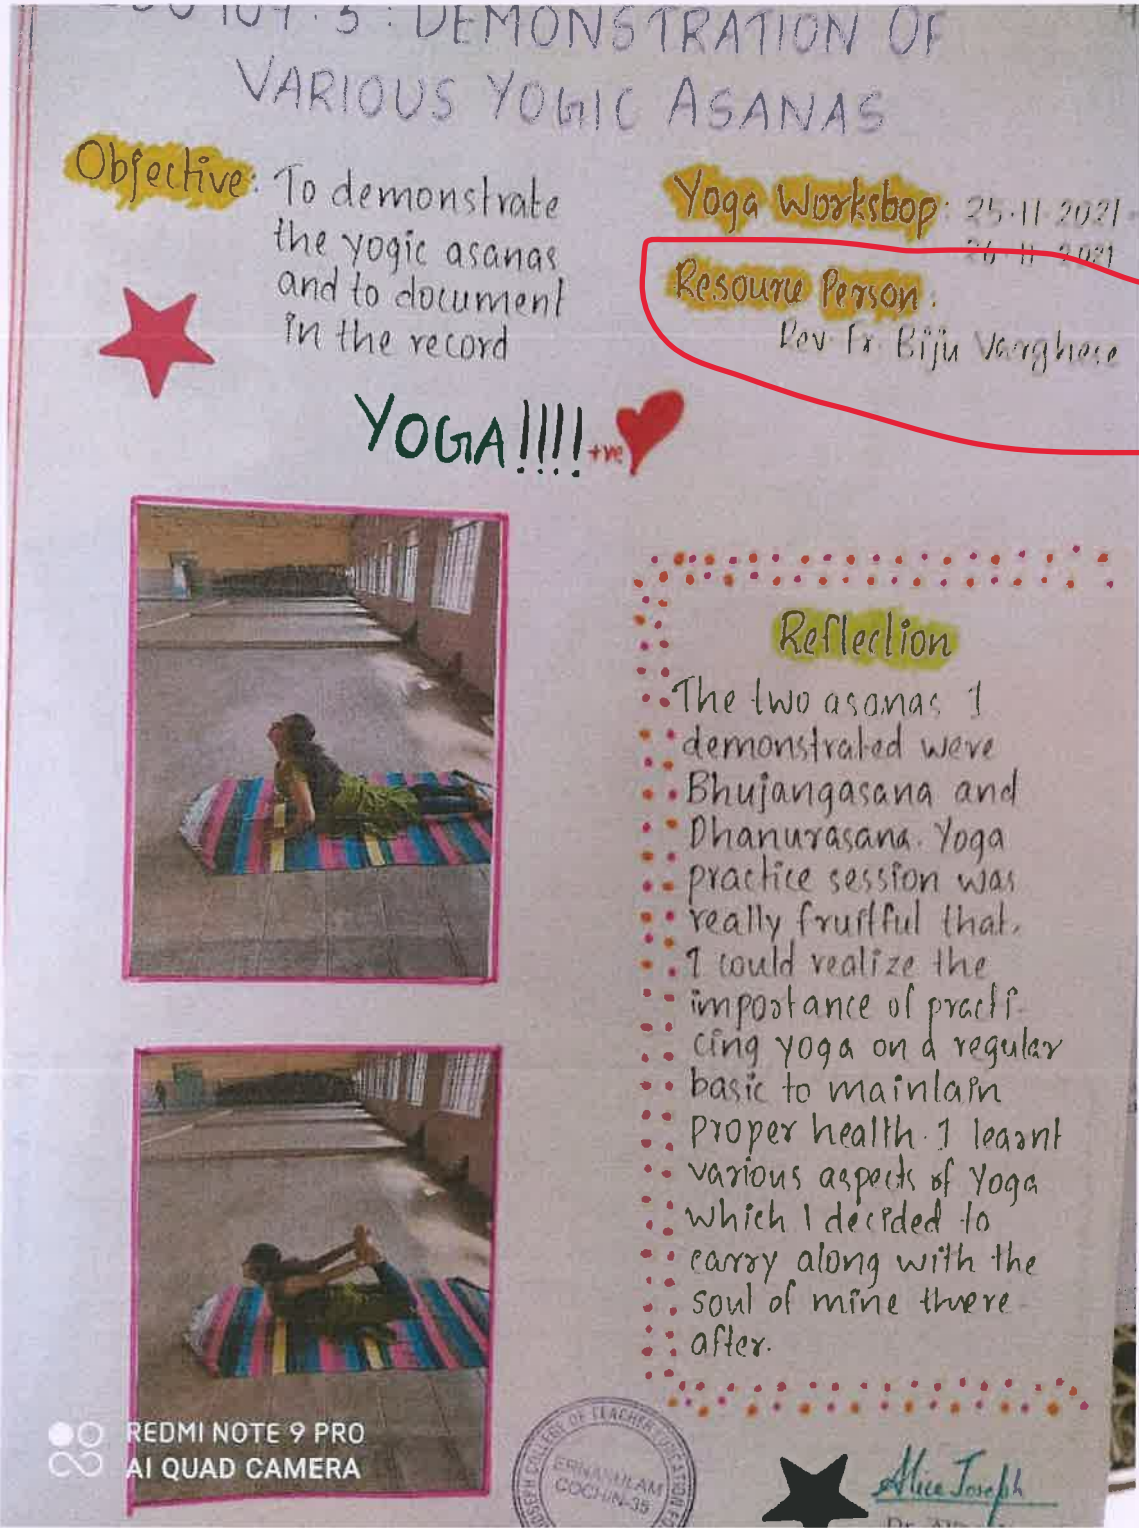 107.5: DEMONSTRATION OF
VARIOUS YOGIC ASANAS
Objective: To demonstrate
the yogic asanas
and to document
in the record
Yoga Workshop: 25-11-2021
26-11-2021
Resource Person:
Rev. Fr. Biju Varghese
YOGA!!!! +ve
Reflection
The two asanas I
demonstrated were
Bhujangasana and
Dhanurasana. Yoga
practice session was
really fruitful that,
I could realize the
importance of practi-
cing yoga on a regular
basic to maintain
proper health. I learnt
various aspects of Yoga
which I decided to
carry along with the
soul of mine there
after.
REDMI NOTE 9 PRO
AI QUAD CAMERA
JOSEPH COLLEGE OF TEACHER EDUCATION FO
ERNAKULAM
COCHIN-35
Alice Joseph